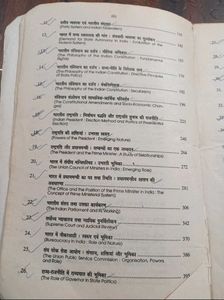 (iii)
दलीय व्यवस्था एवं भारतीय संघवाद
(Party System and Indian Federalism) 141
13. भारत में राज्य स्वायत्तता की मांग : संघवाद में व्यवस्था का मूल्यांकन
(Demand for State Autonomy in India : Evaluation of the
System) 152
14. भारतीय संविधान का दर्शन : मौलिक अधिकार
(The Philosophy of the Indian Constitution : Fundamental
Rights)
भारतीय संविधान का दर्शन : राज्य-नीति के निदेशक तत्व
(The Philosophy of the Indian Constitution : Directive Principles
of State Policy)
भारतीय संविधान का दर्शन : पंथनिरपेक्षता
(The Philosophy of the Indian Constitution : Secularism)
संविधान संशोधन एवं सामाजिक-आर्थिक परिवर्तन
(The Constitutional Amendments and Socio-Economic Change)
भारतीय राष्ट्रपति : निर्वाचन पद्धति और राष्ट्रपति चुनाव की राजनीति
(Indian President : Election Method and Politics of Presidential
राष्ट्रपति की शक्तियां : उभरता स्वरूप
(Powers of the President : Emerging Nature)
राष्ट्रपति और प्रधानमंत्री : सम्बन्धों का एक अध्ययन
(The President and the Prime Minister : A Study of Relationships)
21. भारत में संघीय मन्त्रिपरिषद : उभरती भूमिका
(The Union Council of Ministers in India : Emerging Role)
22. भारत में प्रधानमन्त्री का पद तथा स्थिति : प्रधानमन्त्रीय शासन की
अवधारणा
(The Office and the Position of the Prime Minister in India : The
Concept of Prime Ministerial System) 286
भारतीय संसद तथा उसका कार्यकरण
(The Indian Parliament and its Working) 306
सर्वोच्च न्यायालय तथा न्यायिक पुनर्विलोकन
(Supreme Court and Judicial Review) 342
भारत में नौकरशाही : स्वरूप एवं भूमिका
(Bureaucracy in India : Role and Nature) 370
संघ लोक सेवा आयोग : संगठन, शक्तियां और भूमिका
(The Union Public Service Commission : Organisation, Powers
and Role) 386
राज्य-राजनीति में राज्यपाल की भूमिका
(The Role of Governor in State Politics) 395